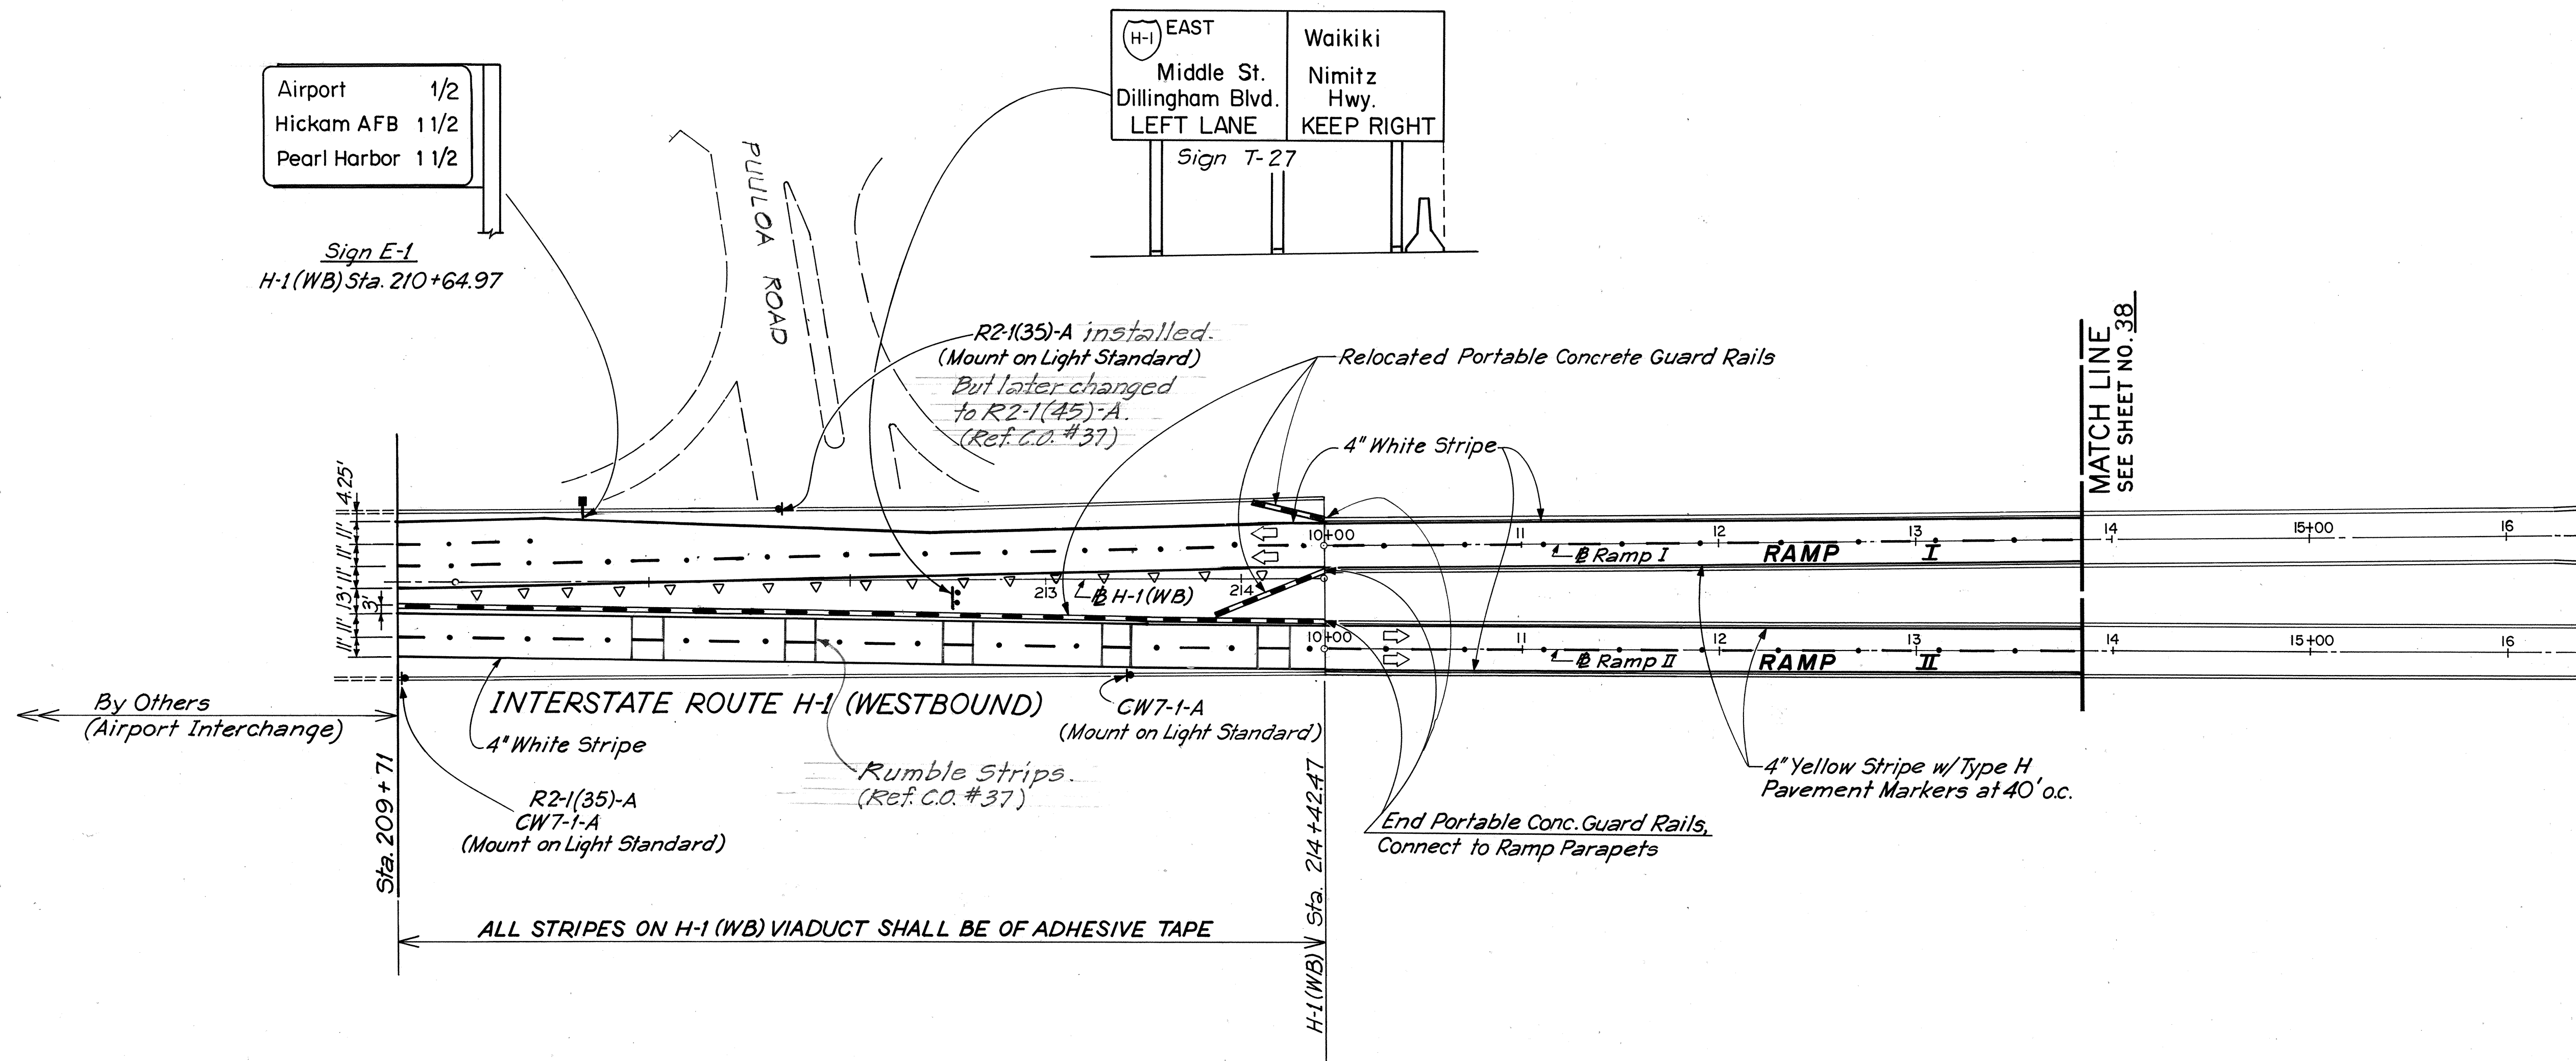 Airport 1/2
Hickam AFB 1 1/2
Pearl Harbor 1 1/2
Sign E-1
H-1 (WB) Sta. 210+64.97
PUULOA ROAD
H-1 EAST
Middle St.
Dillingham Blvd.
LEFT LANE
Waikiki
Nimitz
Hwy.
KEEP RIGHT
Sign T-27
R2-1(35)-A installed.
(Mount on Light Standard)
But later changed
to R2-1(45)-A.
(Ref. C.O. #37)
Relocated Portable Concrete Guard Rails
4" White Stripe
MATCH LINE
SEE SHEET NO. 38
4.25'
11'
11'
11'
13'
3'
11'
11'
213
214
℄ H-1 (WB)
10+00
11
12
13
14
15+00
16
℄ Ramp I
RAMP I
10+00
11
12
13
14
15+00
16
℄ Ramp II
RAMP II
By Others
(Airport Interchange)
INTERSTATE ROUTE H-1 (WESTBOUND)
4" White Stripe
CW7-1-A
(Mount on Light Standard)
Rumble Strips.
(Ref. C.O. #37)
R2-1(35)-A
CW7-1-A
(Mount on Light Standard)
Sta. 209+71
H-1 (WB) Sta. 214+42.47
4" Yellow Stripe w/Type H
Pavement Markers at 40' o.c.
End Portable Conc. Guard Rails,
Connect to Ramp Parapets
ALL STRIPES ON H-1 (WB) VIADUCT SHALL BE OF ADHESIVE TAPE